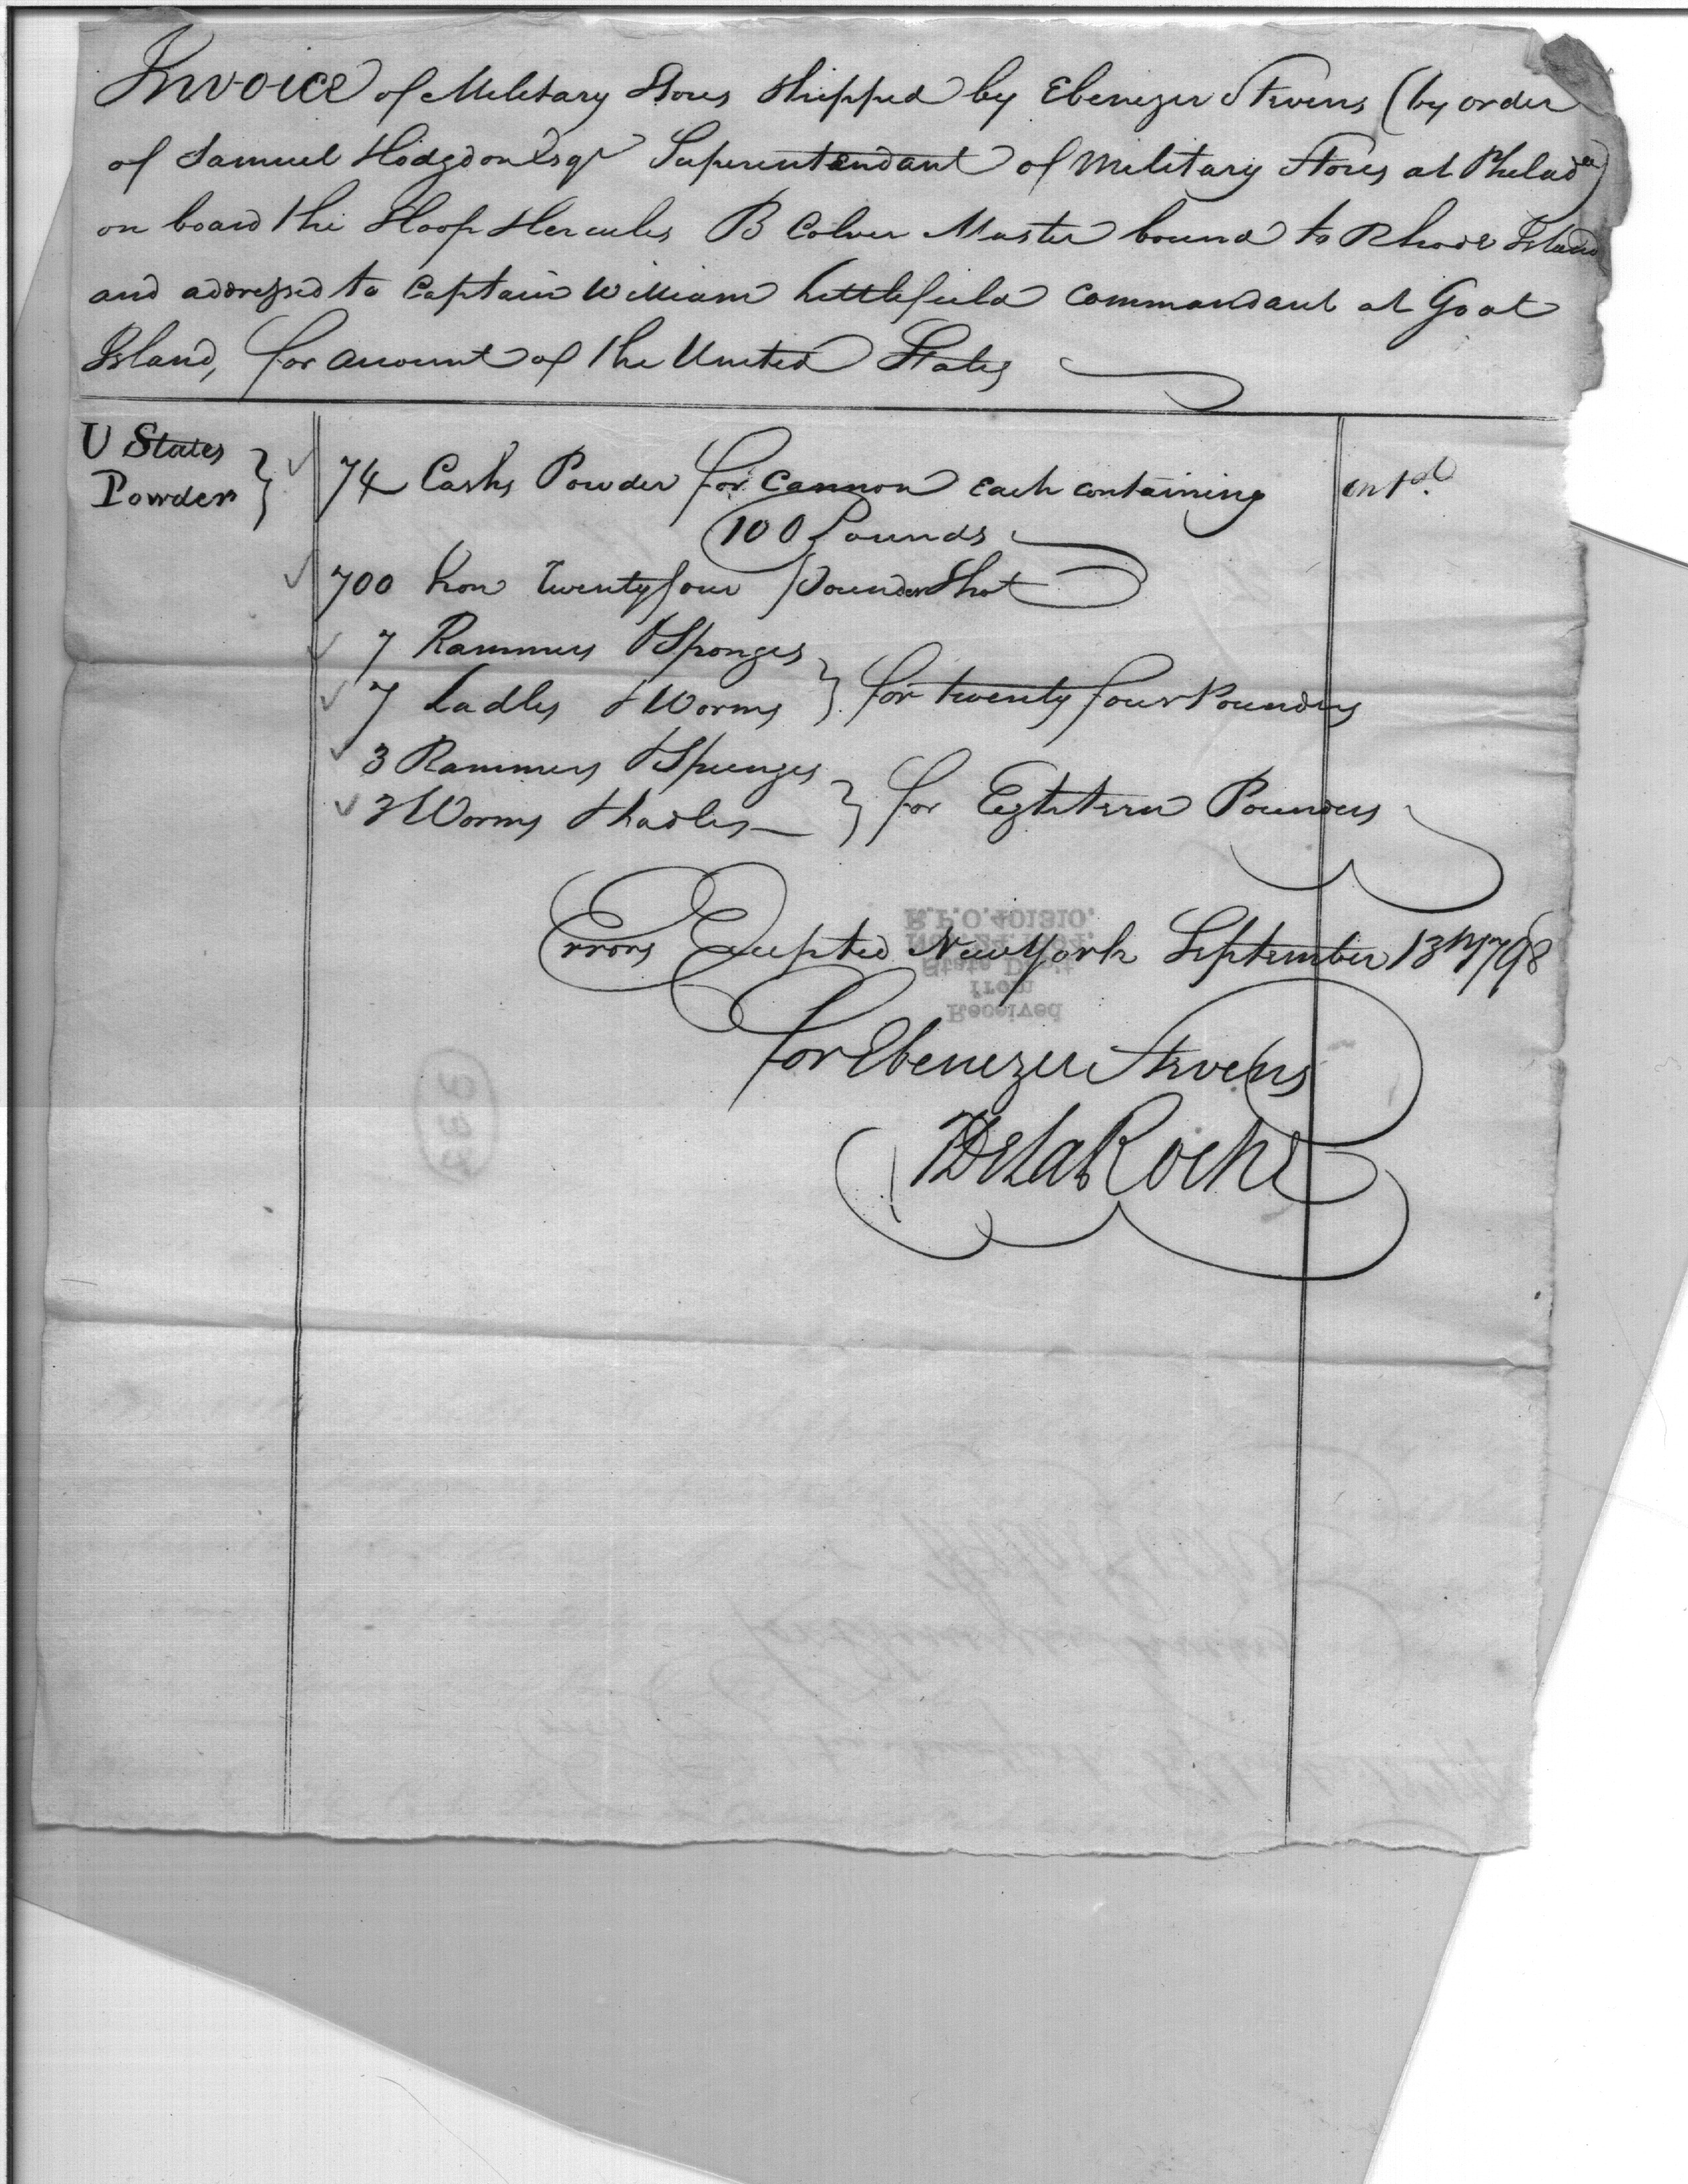 Invoice of Military Stores Shipped by Ebenezer Stevens (by order
of Samuel Hodgdon Esqr Superintendant of Military Stores at Philada)
on board the Sloop Hercules B Colver Master bound to Rhode Island
and addressed to Captain William Littlefield Commandant at Goat
Island, for account of the United States
U States
Powder } 74 Casks Powder for Cannon each containing
100 Pounds
700 Iron Twenty four Pounder Shot
7 Rammers & Sponges
7 Ladles & Worms } for twenty four Pounders
3 Rammers & Spunges
3 Worms & Ladles } for Eighteen Pounders
Errors Excepted New York September 13th 1798
for Ebenezer Stevens
De La Roche
Received
from
State Dep't
R.P.O. 401310.